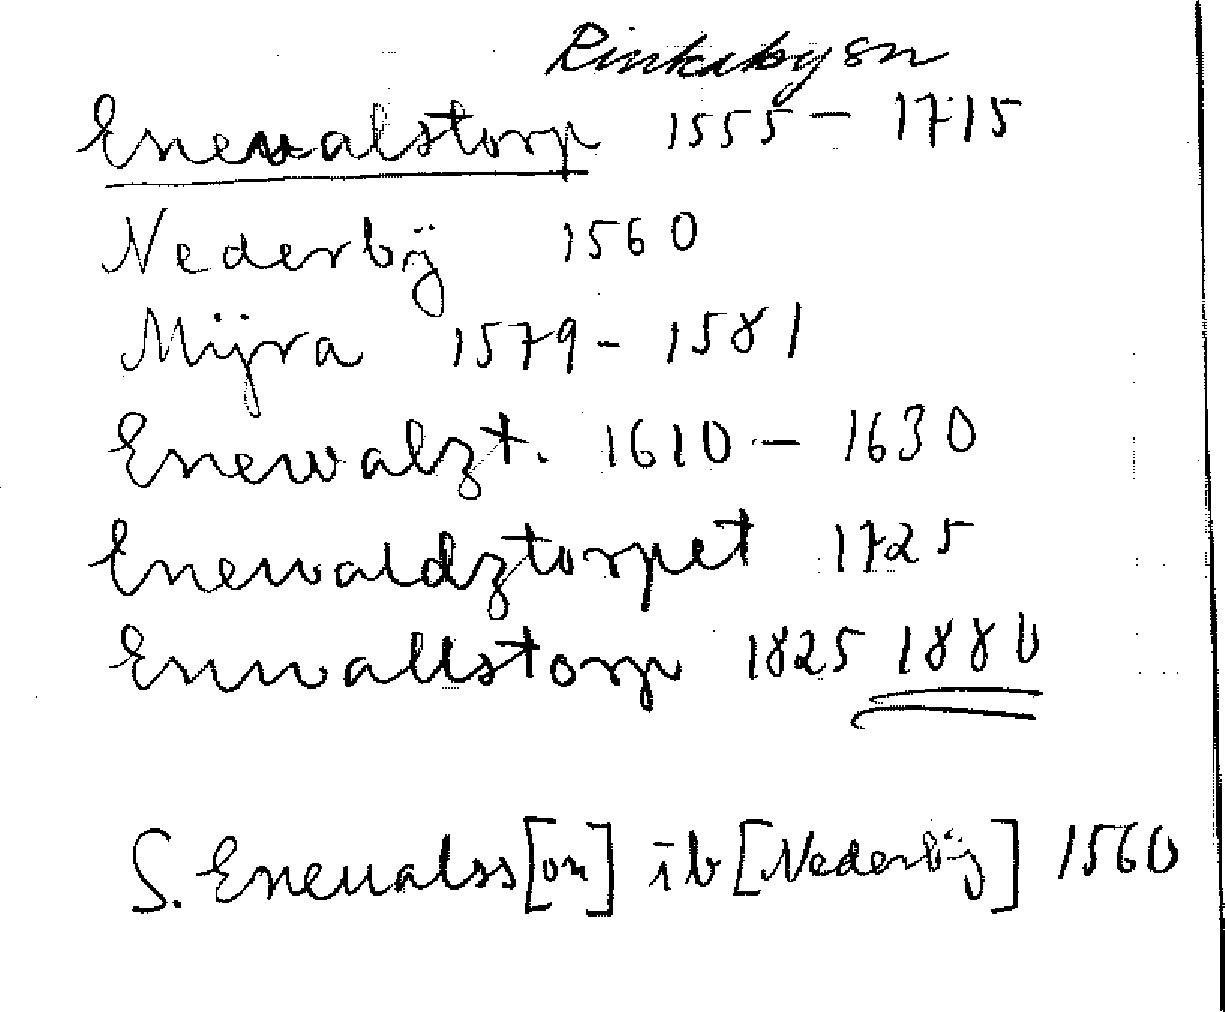 Rinkaby sn
Enevalstorp 1555 – 1715
Nederbÿ 1560
Mÿra 1579 – 1581
Enewalzt. 1610 – 1630
Enewaldztorpet 1725
Enwallstorp 1825 1880
S. Eneualss[on] ib [Nederbÿ] 1560